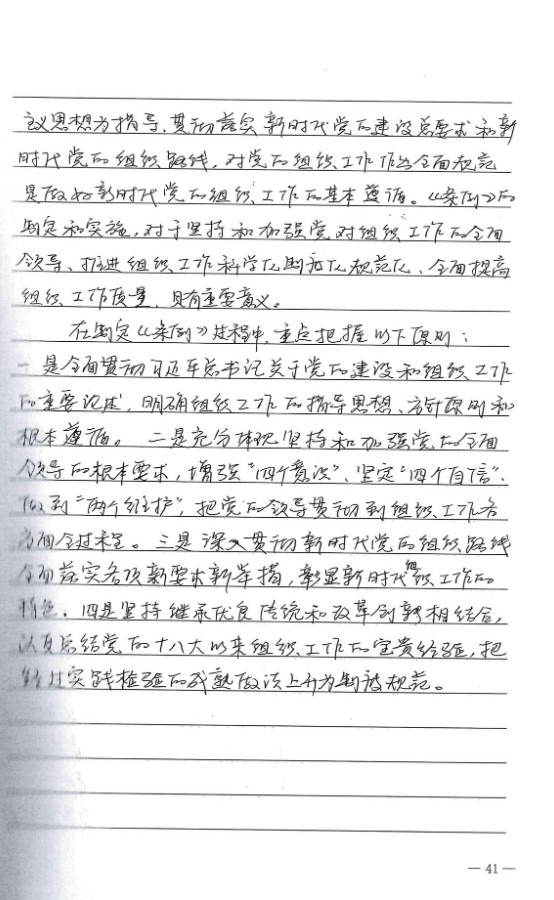 主义思想为指导,贯彻落实新时代党的建设总要求和新
时代党的组织路线,对党的组织工作作出全面规范
是做好新时代党的组织工作的基本遵循。《条例》的
制定和实施,对于坚持和加强党对组织工作的全面
领导、推进组织工作科学化制度化规范化、全面提高
组织工作质量,具有重要意义。
在制定《条例》过程中,重点把握以下原则:
一是全面贯彻习近平总书记关于党的建设和组织工作
的重要论述,明确组织工作的指导思想、方针原则和
根本遵循。二是充分体现坚持和加强党的全面
领导的根本要求,增强“四个意识”、坚定“四个自信”、
做到“两个维护”,把党的领导贯彻到组织工作各
方面全过程。三是深入贯彻新时代党的组织路线
全面落实各项新要求新举措,彰显新时代组织工作的
特色。四是坚持继承优良传统和改革创新相结合,
认真总结党的十八大以来组织工作的宝贵经验,把
经过实践检验的成熟做法上升为制度规范。
— 41 —